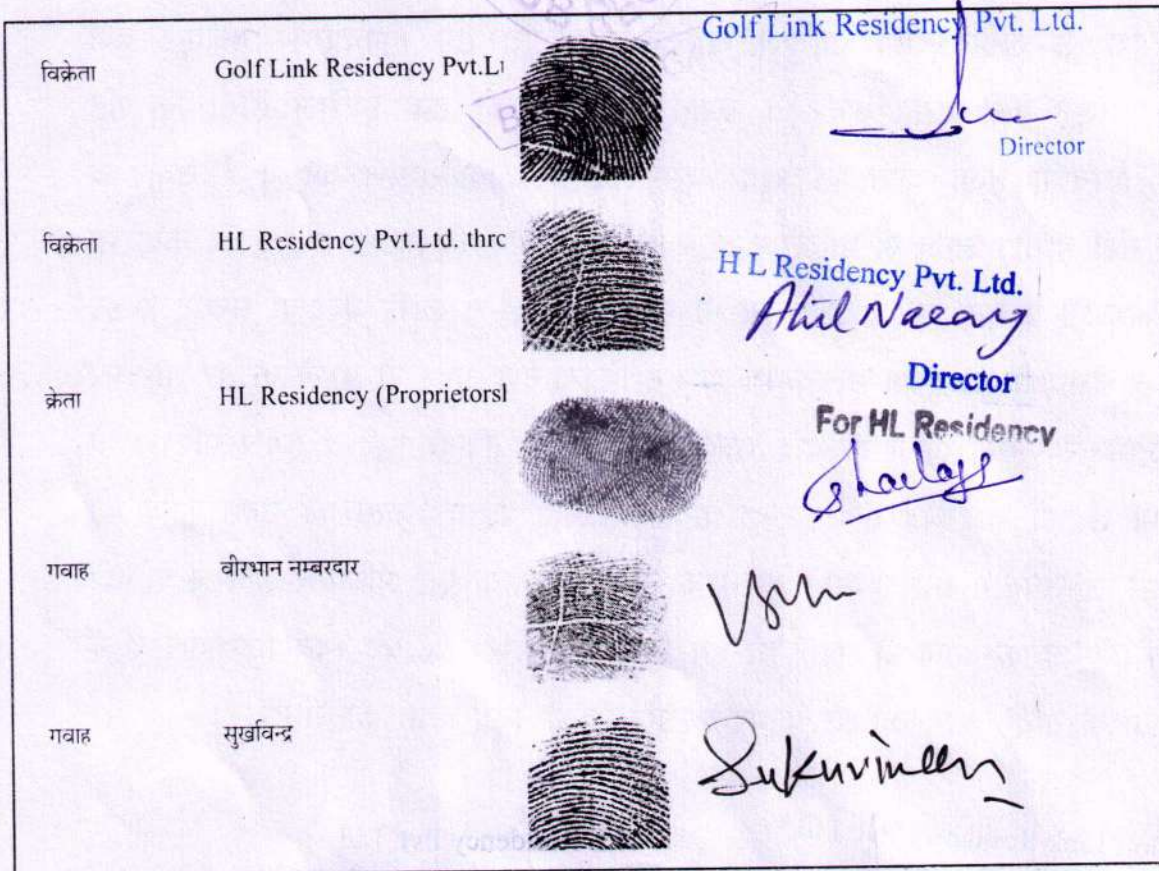 Golf Link Residency Pvt. Ltd.
विक्रेता Golf Link Residency Pvt.L
Director
विक्रेता HL Residency Pvt.Ltd. thro
H L Residency Pvt. Ltd.
Akil Narang
Director
क्रेता HL Residency (Proprietorsl
For HL Residency
गवाह वीरभान नम्बरदार
गवाह सुखविन्द्र
Sukuvinder